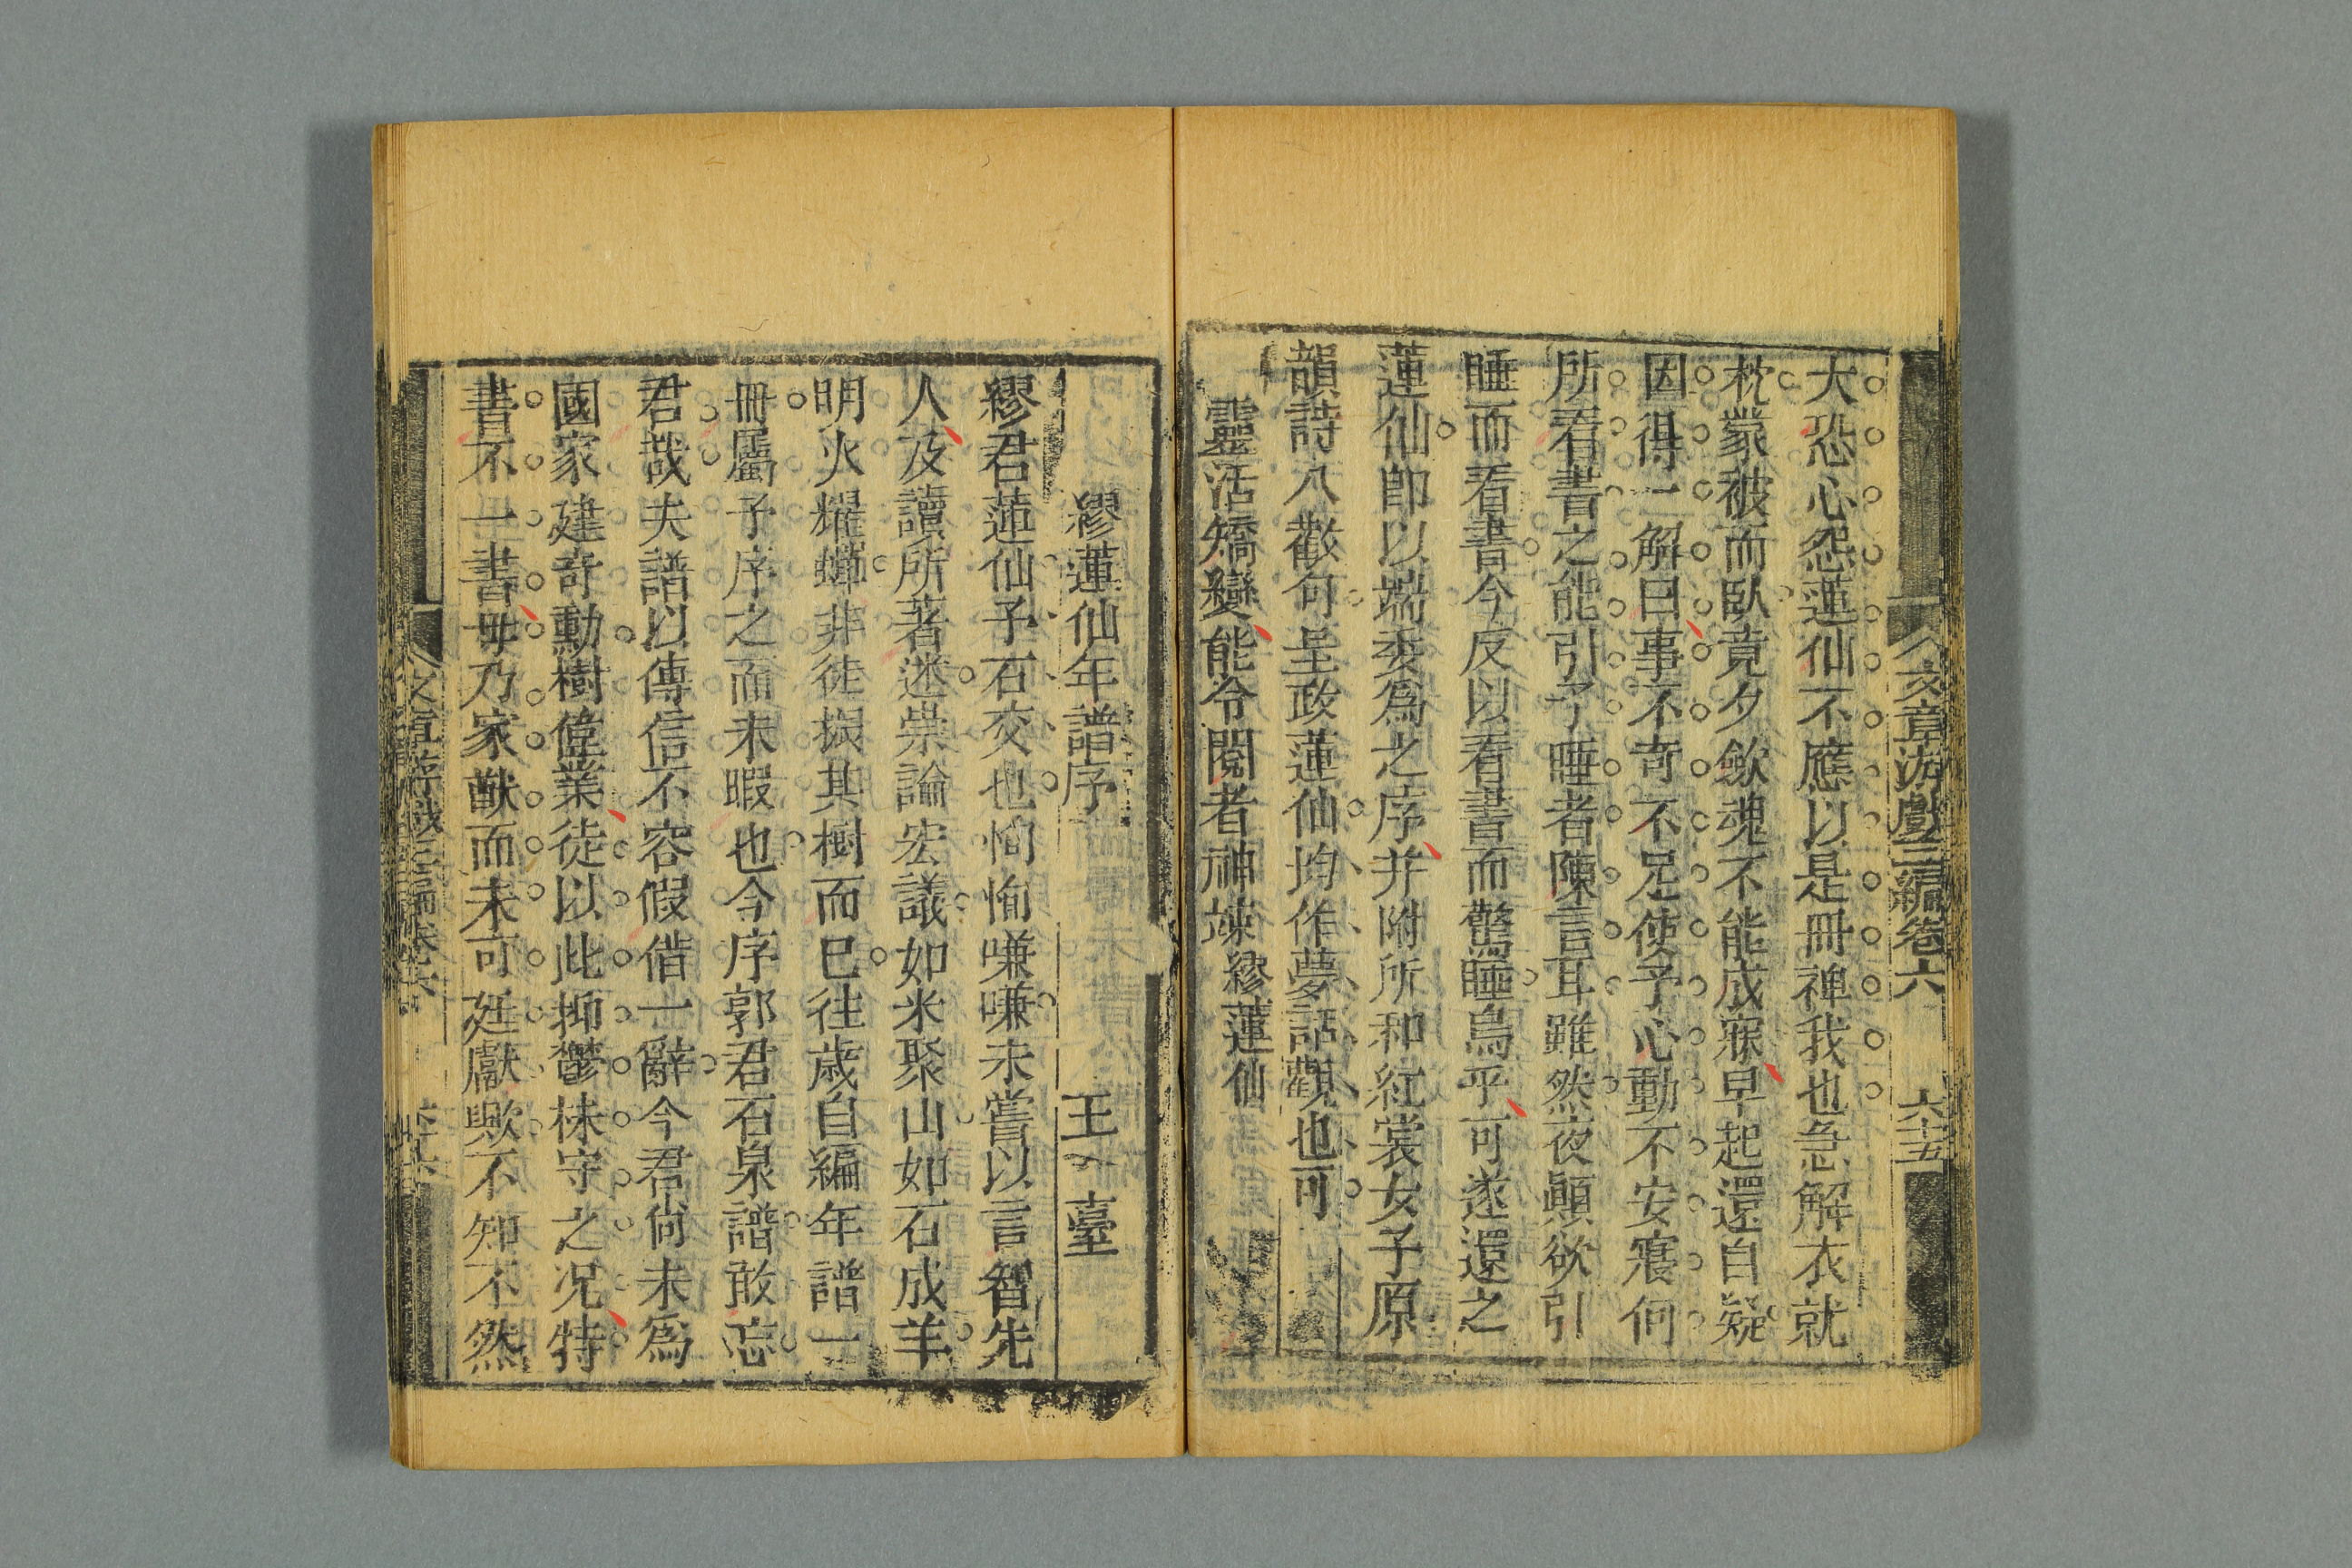 文章游戲三編卷六
六十五
大恐心怨蓮仙不應以是冊禅我也急解衣就
枕蒙被而臥竟夕斂魂不能成寐早起還自疑
因得一解曰事不奇不足使予心動不安寢何
所看書之能引予睡者陳言耳雖然夜顛欲引
睡而看書今反以看書而驚睡烏乎可遂還之
蓮仙卽以端委爲之序并附所和紅裳女子原
韻詩八截句呈政蓮仙均作夢話觀也可
靈活矯變能令閱者神竦繆蓮仙
繆蓮仙年譜序
王 臺
繆君蓮仙予石交也恂恂嗛嗛未嘗以言智先
人及讀所著迷祟論宏議如米聚山如石成羊
明火耀蟬非徒振其樹而已往歲自編年譜一
冊屬予序之而未暇也今序郭君石泉譜敢忘
君哉夫譜以傳信不容假借一辭今君尙未爲
國家建奇勳樹偉業徒以此抑鬱株守之況特
書不一書毋乃家猷而未可廷獻歟不知不然
文章游戲三編卷六
六十六